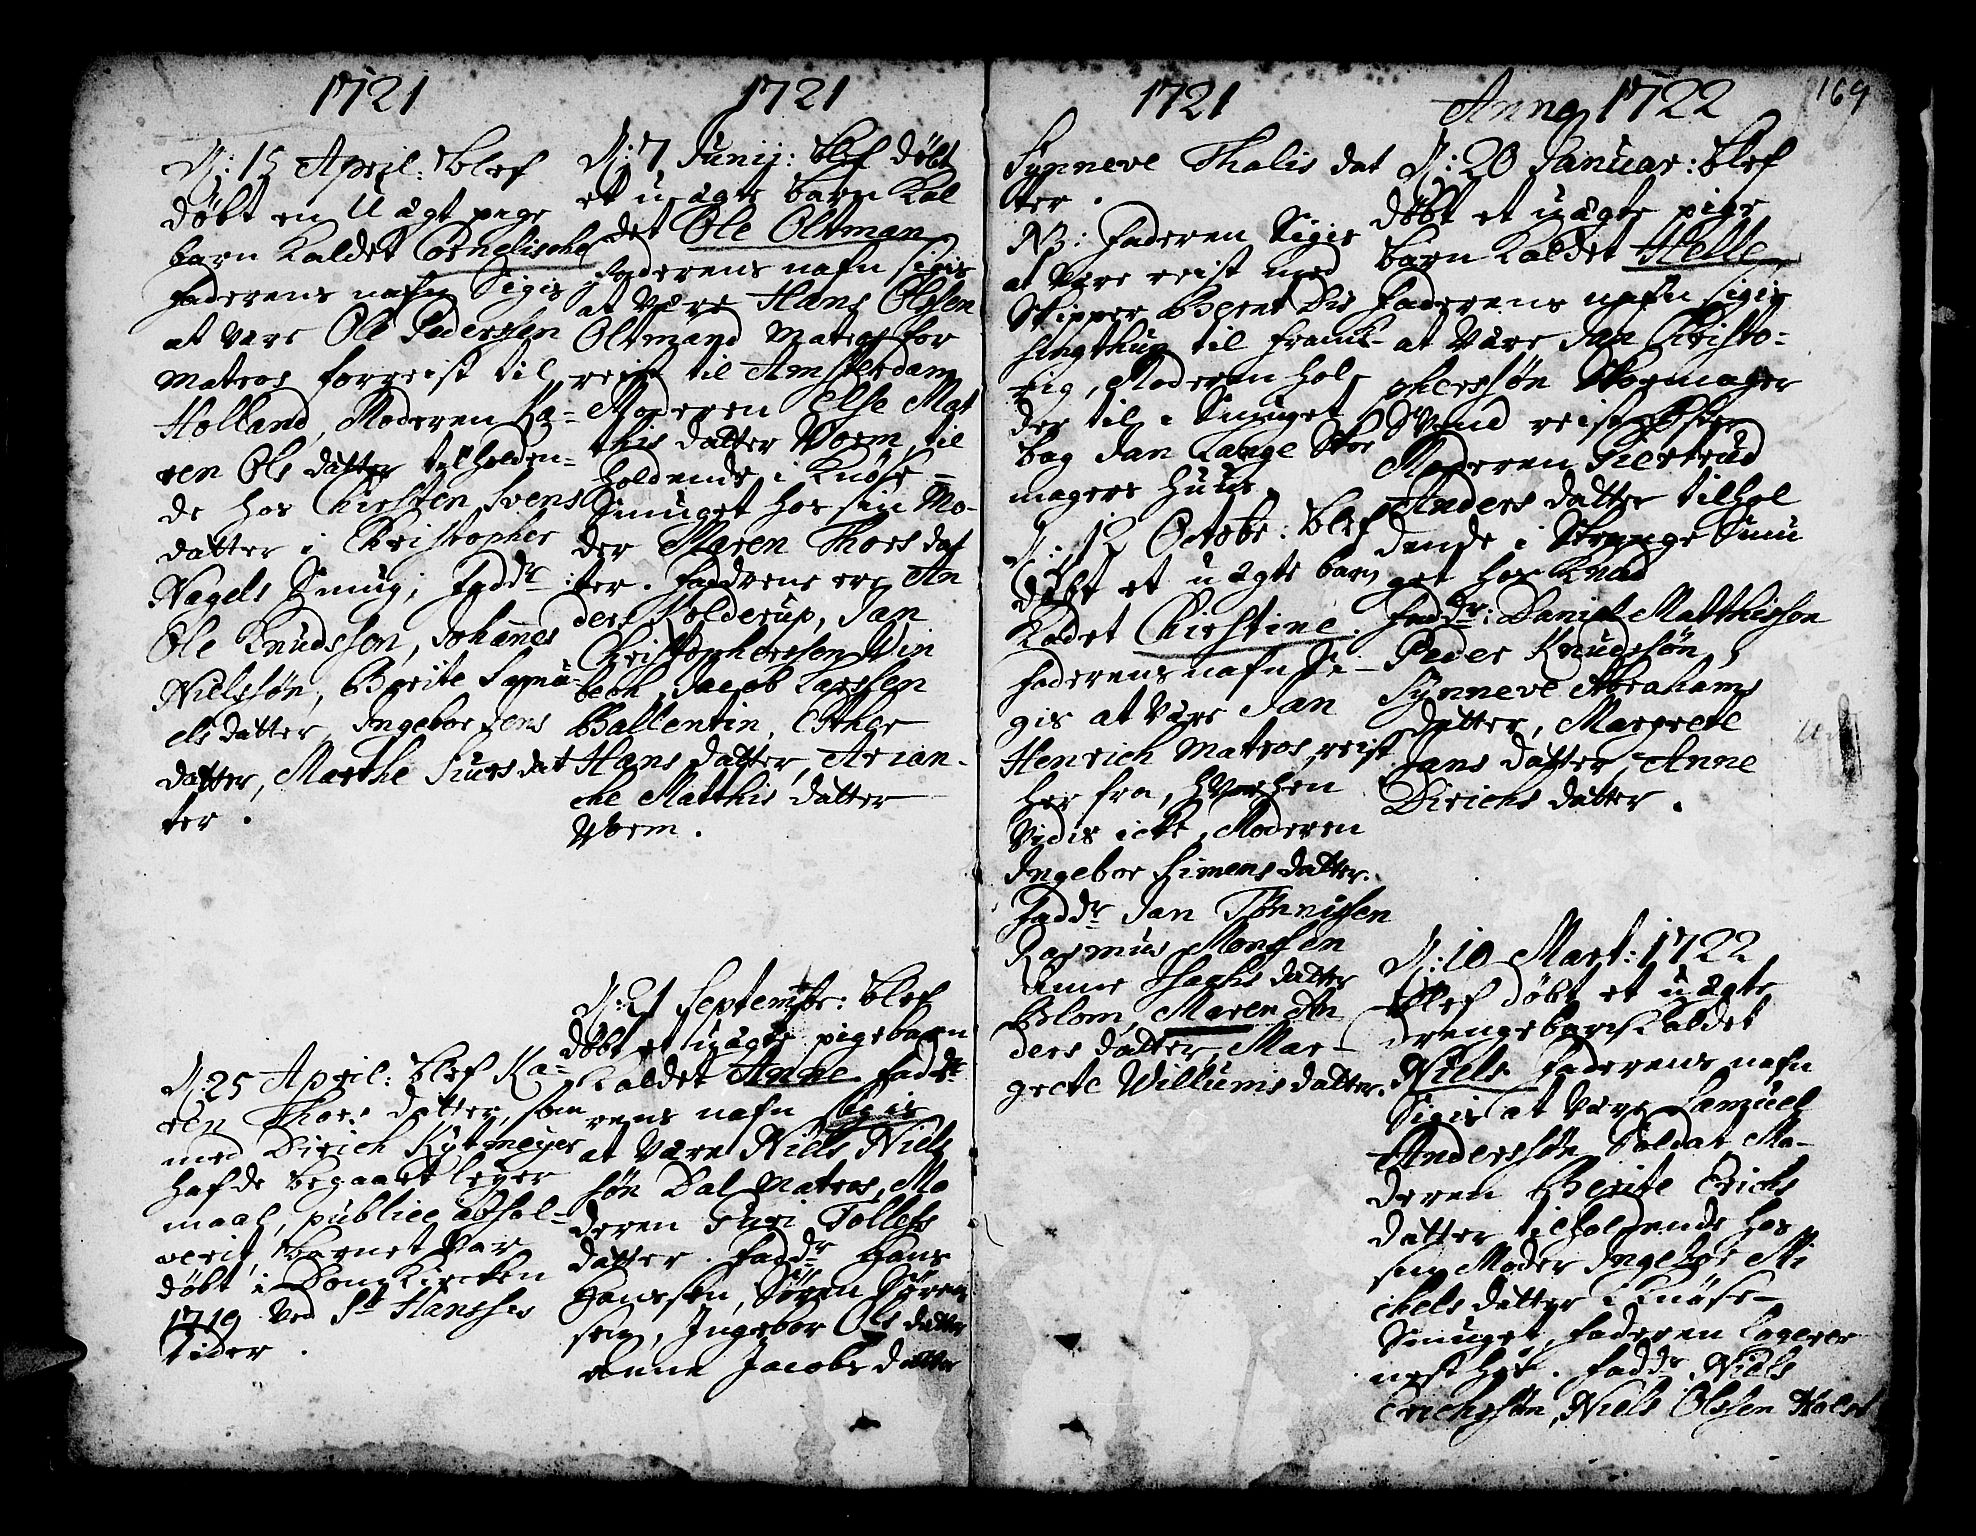 1721
D: 15 April: blef
døbt en U ægt pige
barn kaldet Cornelische
faderens nafn Sigis
at være Ole Pederssen
Matros forreist til
Holland, Moderen Ka-
ren Ols datter tilholden-
de hos Kirsten Svens
datter i Christopher
Nagels Smug, Fadd:r
Ole Knudssøn, Johannes
Nielssøn, Berite Samu-
els datter, Ingebor Jens
datter, Marthe Siurs dat
ter.
D: 25 April: blef Ka-
ren Thor: datter, som
med Dirich Kytmeyer
hafde begaaet leyer
maal, publice absol-
verit, Barnet var
døbt i DomKircken
1719 ved St Hansses
tider.
1721
D: 7 Junij: blef døbt
et u ægte barn kal
det Ole Oltman
faderens nafn sigis
at være Hans Olssen
Oltmand Matros for
reist til Amsterdam
Moderen Else Mat
this datter Worm, til
holdende i Knøse-
Smuget hos sin Mo-
der Maren Thors dat
ter. Faddrene ere An
ders Kolderup, Jan
Christophersen Win
bech, Jacob Larssen
Ballentin, Cither
Hans datter, Arian-
che Matthis datter
Worm.
D: 21 Septembr: blef
døbt et uægte pigebarn
kaldet Anne. Fade
rens nafn sigis
at være Niels Niels
søn Dal Matros, Mo
deren Guri Tollefs
datter. Fadd:r Hans
Hanssen, Søren Søren
sen, Ingebor Ols datter
Anne Jacobs datter
1721
Synneve Thalis dat
ter.
NB: Faderen Sigis
at være reist med
Skipper Bernt Dis
singthun til Franck-
rig, Moderen hol-
der til i Smuget
bag Jan Lange Sko
magers Huus.
D: 12 Octobr: blef
døbt et u ægte barn
kadet Chirstine.
faderens nafn Si-
gis at være Jan
Henrich Matros reist
her fra, hvorhen
vidis icke, Moderen
Ingebor Simens datter.
Fadd:r Jan Tønnissen
Rasmus Monssen
Anne datter
Blom, Maren An
ders datter, Mar-
grete Willums datter.
Anno 1722
169
D: 20 Januar: blef
døbt et uægte pige
barn kaldet Helle
Faderens nafn sigis
at være Jan Christo-
phersøn Skomager
Svend reist Øster
Moderen Giertrud
Anders datter tilhol
dende i Strange Smu
get hos Knud
Fadd:r: Daniel Matthissøn
Peder Knudssøn,
Synneve Abrahams
datter, Margrete
Jans datter, Anne
Dirichs datter.
D: 10 Mart: 1722
blef døbt et u ægte
drengebarn kaldet
Niels Faderens nafn
Sigis at være Samuel
Anderssøn Soldat Mo-
deren Berite Erichs
datter tilholdende hos
sin Moder Ingebor Mi
chels datter i Knøse-
Smuget, Faderen Logerer
nest hos. Fadd:r Niels
Erichssøn, Niels Olssen Holst